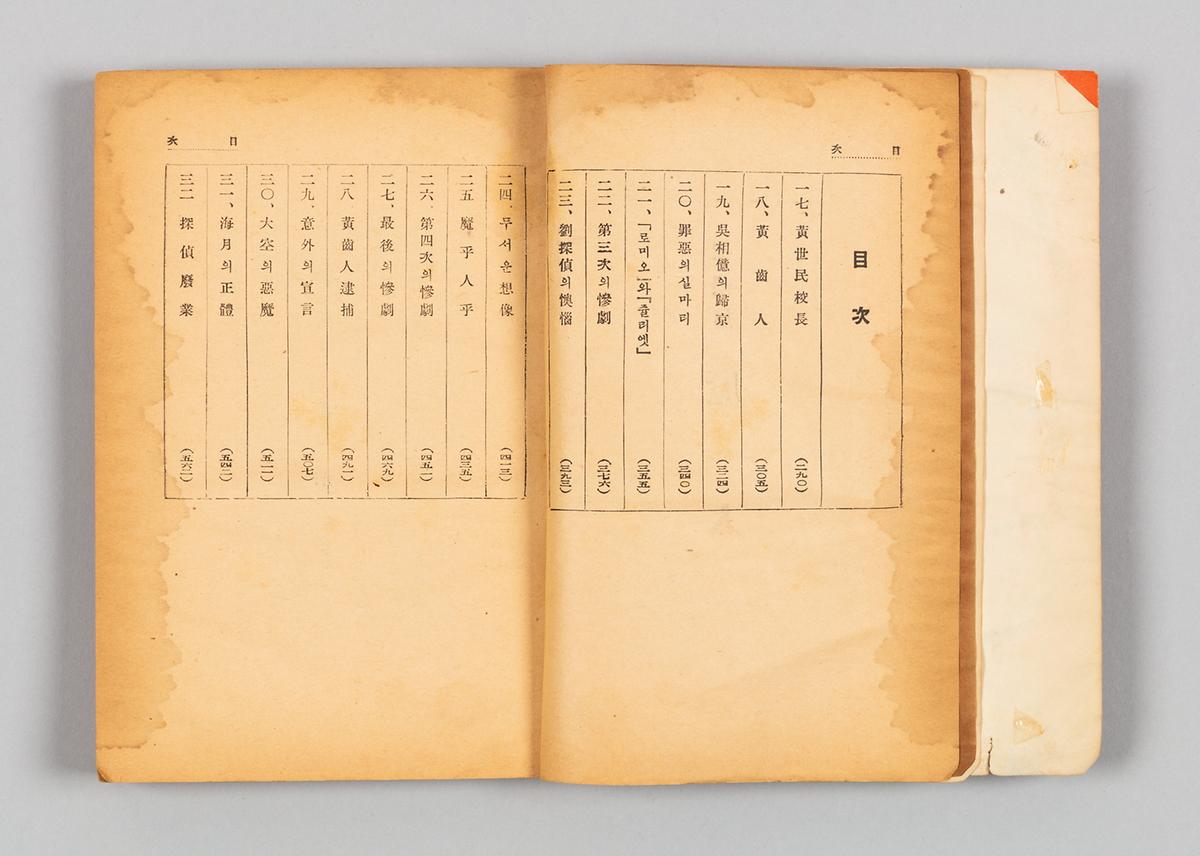 目次
目次
一七、黃世民校長 (二九〇)
一八、黃齒人 (三〇五)
一九、吳相億의歸京 (三二四)
二〇、罪惡의실마리 (三四〇)
二一、「로미오」와「쥴리엣」 (三五五)
二二、第三次의慘劇 (三七六)
二三、劉探偵의懊惱 (三九三)
目次
二四、무서운想像 (四一三)
二五 魔乎人乎 (四三五)
二六、第四次의慘劇 (四五一)
二七、最後의慘劇 (四六九)
二八 黃齒人逮捕 (四九一)
二九、意外의宣言 (五〇七)
三〇、大空의惡魔 (五二一)
三一、海月의正體 (五四二)
三二 探偵廢業 (五六二)